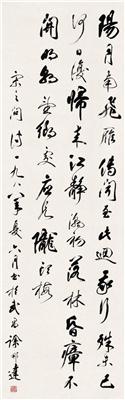 陽月南飛雁傳聞至此迴我行殊未已
何日復歸來江靜潮初落林昏瘴不
開明朝望鄉處應見隴頭梅
宋之問詩一九八八年夏六月書於武昌徐